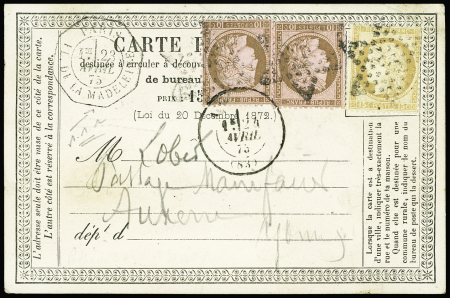 PARIS
1E
23
AVRIL
75
DE LA MADELEINE
CARTE P
destinée à circuler à découv
de bureau
PRIX : 15
(Loi du 20 Décembre 1872.)
AVRIL
75
(83)
M Lobet
Auxerre
Yonne
dép<sup>t</sup> d
L'adresse seule doit être mise de ce côté de la carte.
L'autre côté est réservé à la correspondance.
Lorsque la carte est à destination
d'une ville, indiquer très-exactement la
rue et le numéro de la maison.
Quand elle est destinée pour une
commune rurale, indiquer le nom du
bureau de poste qui la dessert.